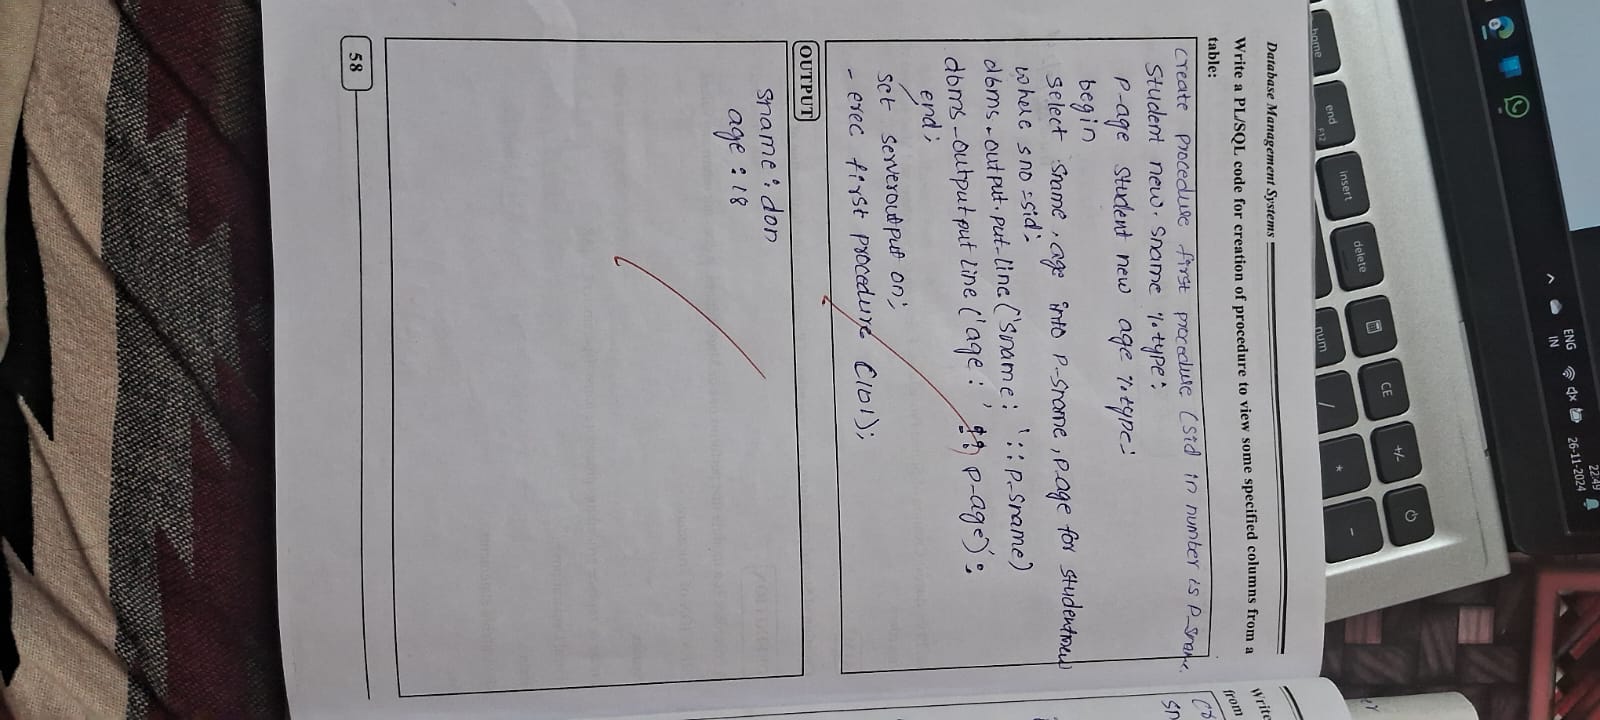 Database Management Systems
Write a PL/SQL code for creation of procedure to view some specified columns from a
table:
create procedure first procedure (sid in number is P-sname
student new. sname %type:
P-age student new age %type:
begin
select sname, age into P-sname, P-age for studentnew
where sno = sid:
dbms-output.put-line('sname: ':: P-sname)
dbms-output put line ('age: ', :: P-age'):
end;
set serveroutput on;
- exec first procedure (101);
OUTPUT
sname: don
age: 18
58
Write
from
home
end
F12
insert
delete
num
CE
+/-
/
*
-
ENG
IN
22:49
26-11-2024